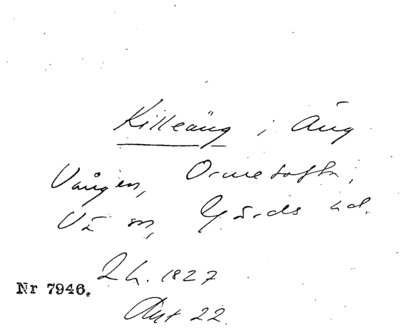 Killeäng i Äng
Vången, Ormetofta,
Vä sn, Gärds hd.
Lh. 1827
Nr 7946.
Akt 22.